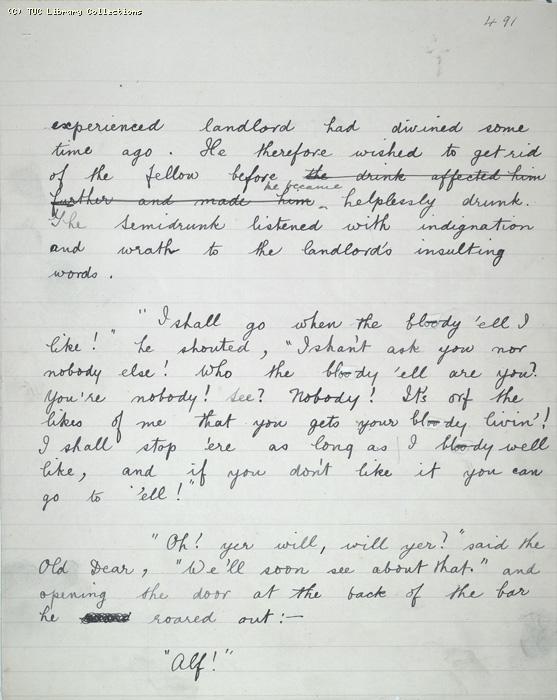 (C) TUC Library Collections
491
experienced landlord had divined some
time ago. He therefore wished to get rid
of the fellow before the drink affected him
he became
further and made him helplessly drunk.
The Semidrunk listened with indignation
and wrath to the landlord's insulting
words.
"I shall go when the bloody 'ell I
like!" he shouted, "I shan't ask you nor
nobody else! Who the bloody 'ell are you?
You're nobody! See? Nobody! It's orf the
likes of me that you gets your bloody livin'!
I shall stop 'ere as long as I bloody well
like, and if you don't like it you can
go to 'ell!"
"Oh! yer will, will yer?" said the
Old Dear, "We'll soon see about that." and
opening the door at the back of the bar
he roared out:—
"Alf!"